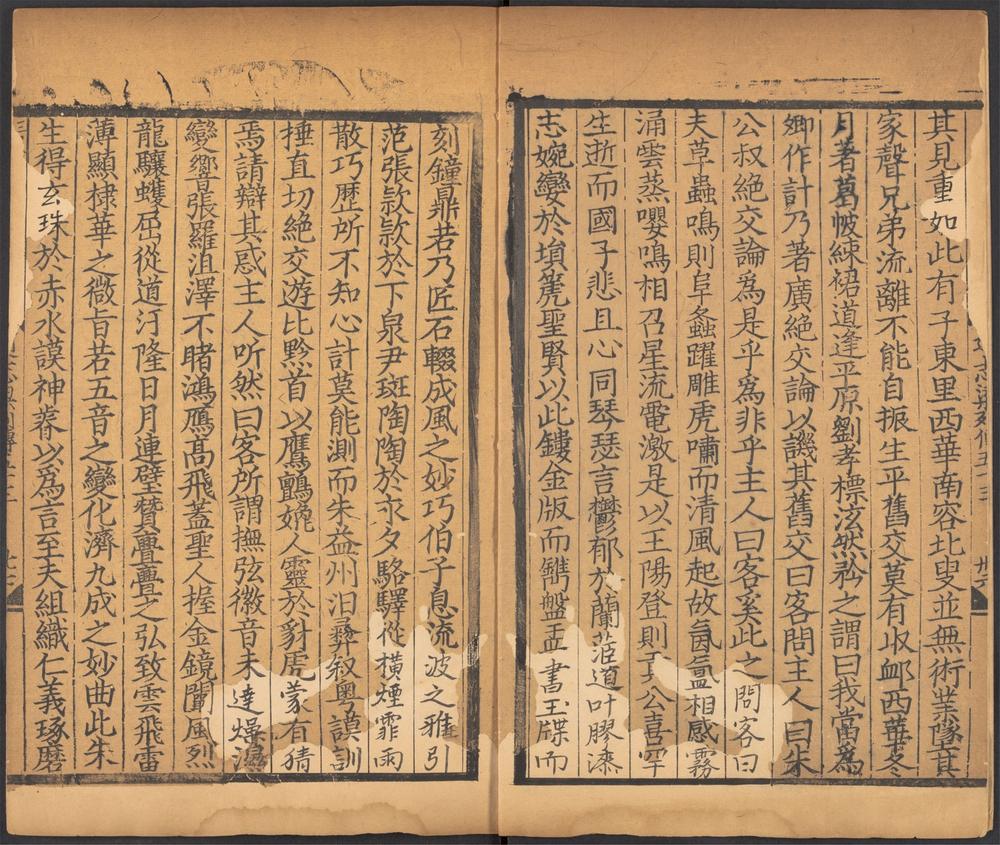 其見重如此有子東里西華南容北叟並無術業墜其
家聲兄弟流離不能自振生平舊交莫有收䘏西華冬
月著葛帔練裙道逢平原劉孝標泫然矜之謂曰我當爲
卿作計乃著廣絶交論以譏其舊交曰客問主人曰朱
公叔絶交論爲是乎爲非乎主人曰客奚此之問客曰
夫草蟲鳴則阜螽躍雕虎嘯而清風起故氤氳相感霧
涌雲蒸嚶鳴相召星流電激是以王陽登則貢公喜罕
生逝而國子悲且心同琴瑟言鬱郁於蘭茝道叶膠漆
志婉孌於塤箎聖賢以此鏤金版而鐫盤盂書玉牒而
刻鐘鼎若乃匠石輟成風之妙巧伯子息流波之雅引
范張款款於下泉尹班陶陶於永夕駱驛從橫煙霏雨
散巧歷所不知心計莫能測而朱益州汩彝叙粤謨訓
捶直切絶交遊比黔首以鷹鸇媲人靈於豺虎蒙有猜
焉請辯其惑主人听然曰客所謂撫弦徽音未達燥濕
變響張羅沮澤不睹鴻鴈髙飛蓋聖人握金鏡闡風烈
龍驤蠖屈從道汙隆日月連璧贊亹亹之弘致雲飛雷
薄顯棣華之微旨若五音之變化濟九成之妙曲此朱
生得玄珠於赤水謨神睿以爲言至夫組織仁義琢磨